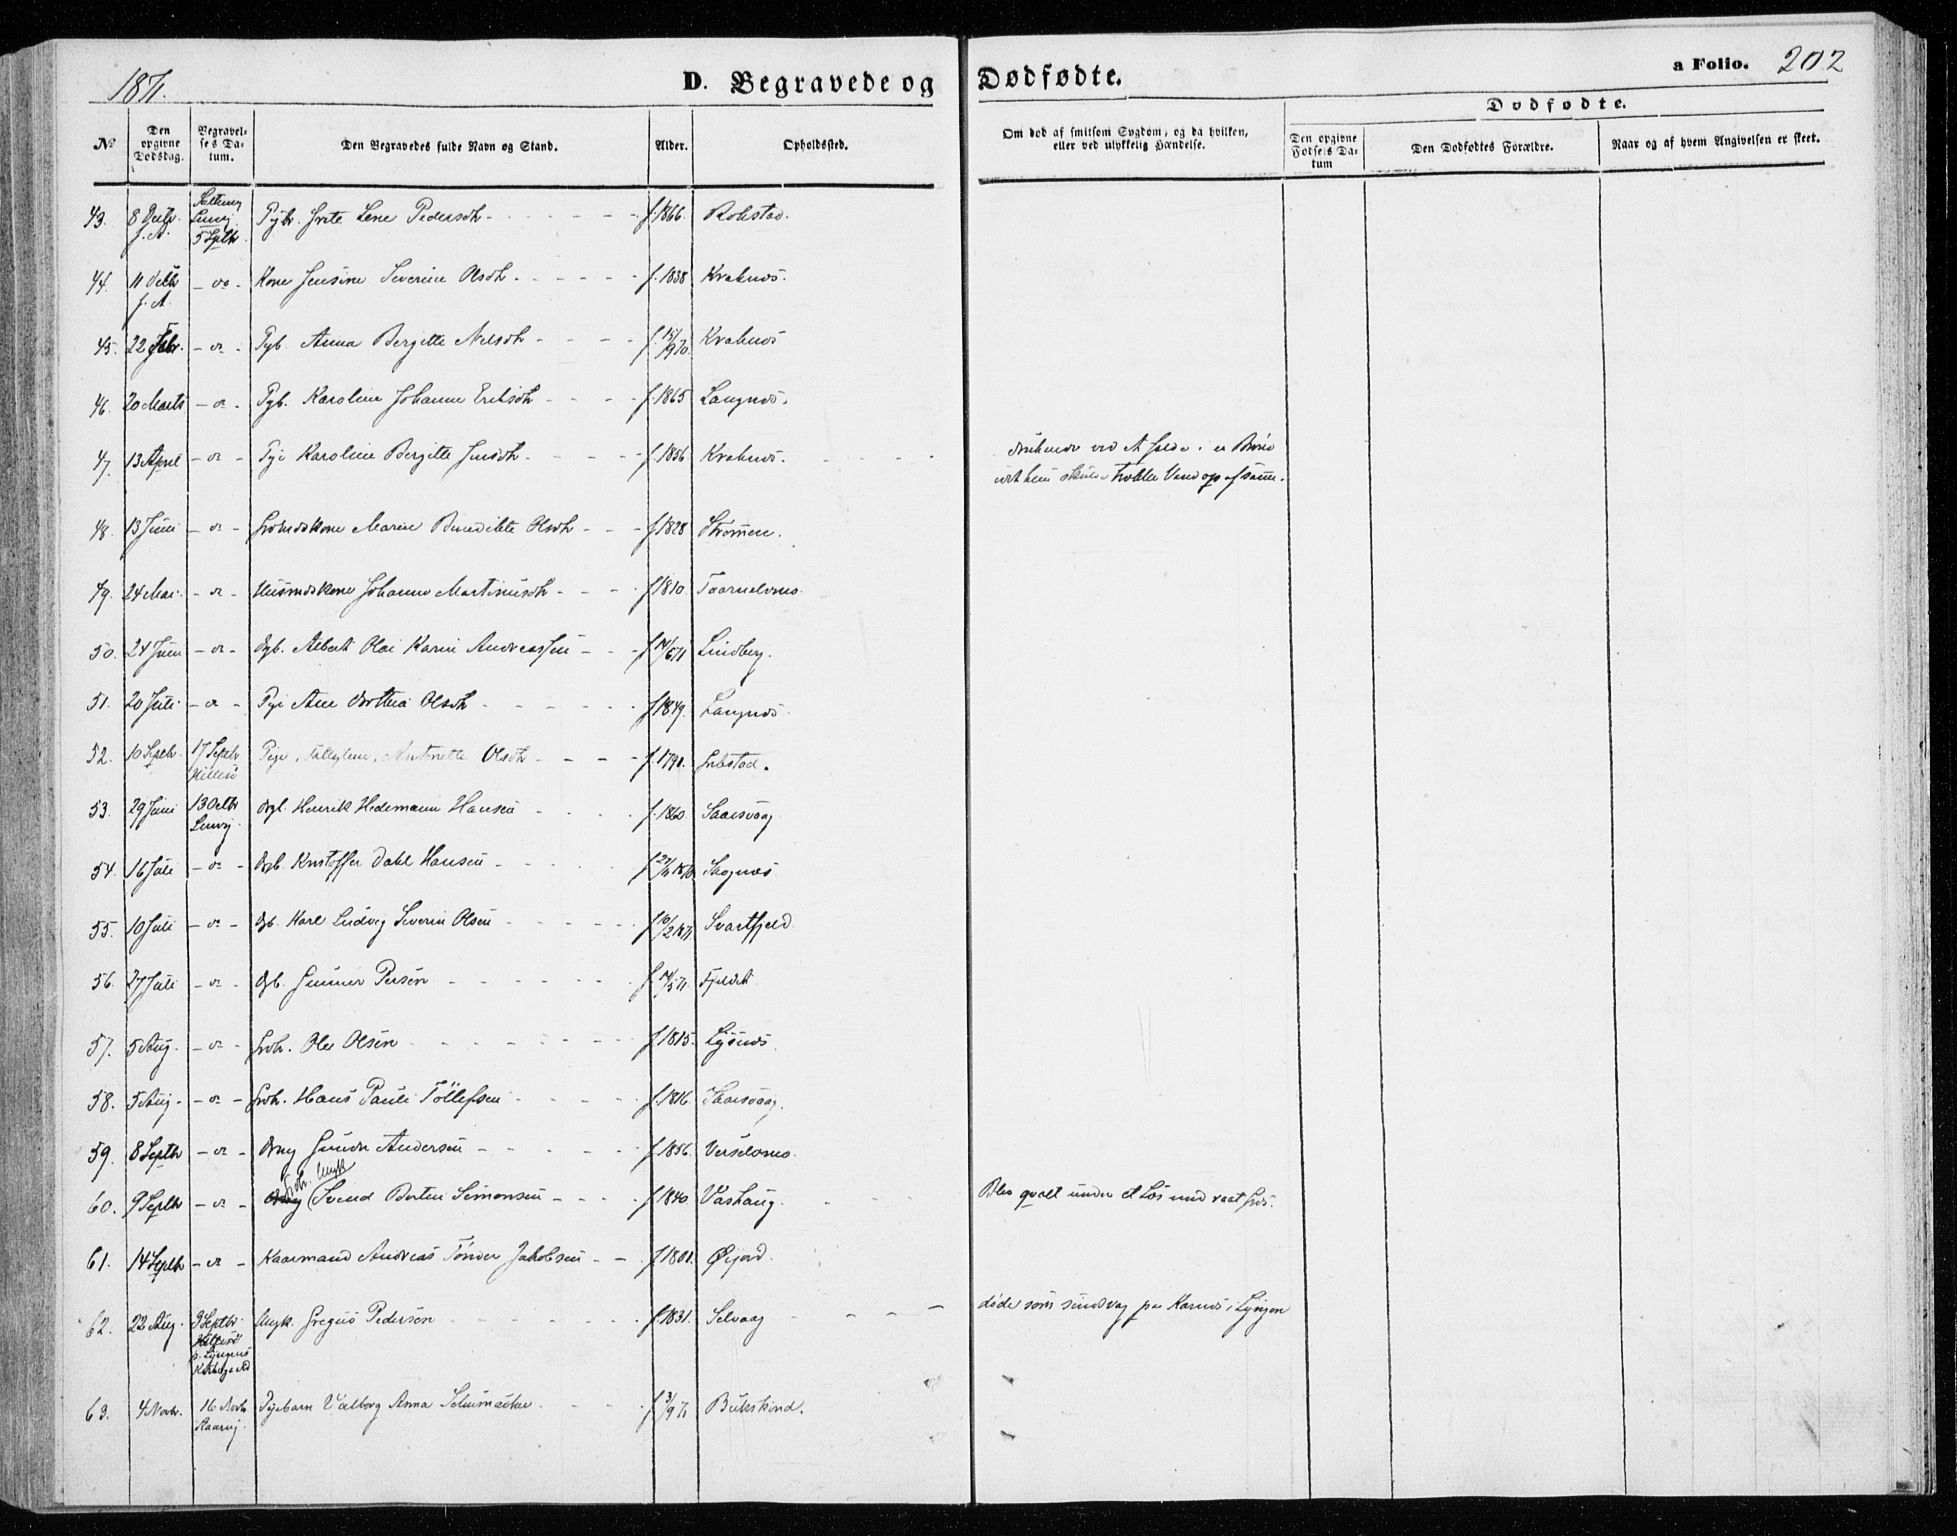 1871.
D. Begravede og Dødfødte.
a Folio. 202
Dødfødte.
No
Den opgivne Dødsdag.
Begravelses Datum.
Den Begravedes fulde Navn og Stand.
Alder.
Opholdssted.
Om død af smitsom Sygdom, og da hvilken, eller ved ulykkelig Hændelse.
Den opgivne Fødsels Datum
Den Dødfødtes Forældre.
Naar og af hvem Angivelsen er skeet.
43. 8 f. A. Lenvig 5 Septbr Pgbr. Grete Lene Pedersdtr f. 1866. Rolestad.
44. 11 Octbr f. A. - do - Kone Jensine Severine Olsdtr f. 1838 Kraknæs.
45. 22 Febr. - do - Pgb. Anna Bergitte Nelsdtr Kraknæs
46. 20 Marts - do - Pgb. Karoline Johanne Eriksdtr f. 1865 Langnæs.
47. 13 April - do - Pige Karoline Bergitte Jensdtr f. 1856 Kraknæs. druknede ved at falde i en Brønd
idet hun skulde trække Vand op af samme.
48. 13 Juni - do - Grdmdskone Maren Benedikte Olsdtr f. 1828 Strømmen.
49. 24 Mai - do - Husmdskone Johanne Martinusdtr f. 1810 Taarnelvmo.
50. 24 Juni - do - Dgb. Albert Olai Karin Andreassen f. 14/6 71 Lindberg.
51. 20 Juli - do - Pige Ane Dorthea Olsdtr f. 1849. Langnæs
52. 10 Septb. 17 Septbr Hillesø Pige Antonette Olsdtr f. 1790. Gibstad.
53. 29 Juni 13 Octbr Lenvig. Dgb. Henrik Hedemann Hansen f. 1860. Skaarsvaag
54. 16 Juli - do - Dgb. Kristoffer Dahl Hansen Skognæs
55. 10 Juli - do - Dgb. Karl Ludvig Severin Olsen f. 16/2 1871 Svartfjeld
56. 27 Juli - do - Dgb. Gunner Persen f. 14/5 71. Fjeldet
57. 5 Aug. - do - Grdbr. Ole Olsen f. 1815. Lysnæs.
58. 5 Aug. - do - Grdbr. Hans Pauli Tøllefsen f. 1816. Skaarsvaag.
59. 8 Septbr - do - Dreng Gunder Andersen f. 1856. Verselvmo.
60. 9 Septbr - do - Ungk. Svend Bertin Simonsen f. 1840. Vashaug. Blev qvalt under et Læs med vaat Græs.
61. 14 Septbr - do - Kaarmand Andreas Tønder Jakobsen f. 1801. Øijord.
62. 22 Aug. 9 Septbr. Hillesø p. Lyngens Kirkegaard Ungk. Gregus Pedersen f. 1831. Selvaag døde som sindsvag paa Karnæs i Lyngen
63. 4 Novbr. 16 Novbr Pigebarn Valborg Anna Schumacher f. 3/9 71 Bukskind.